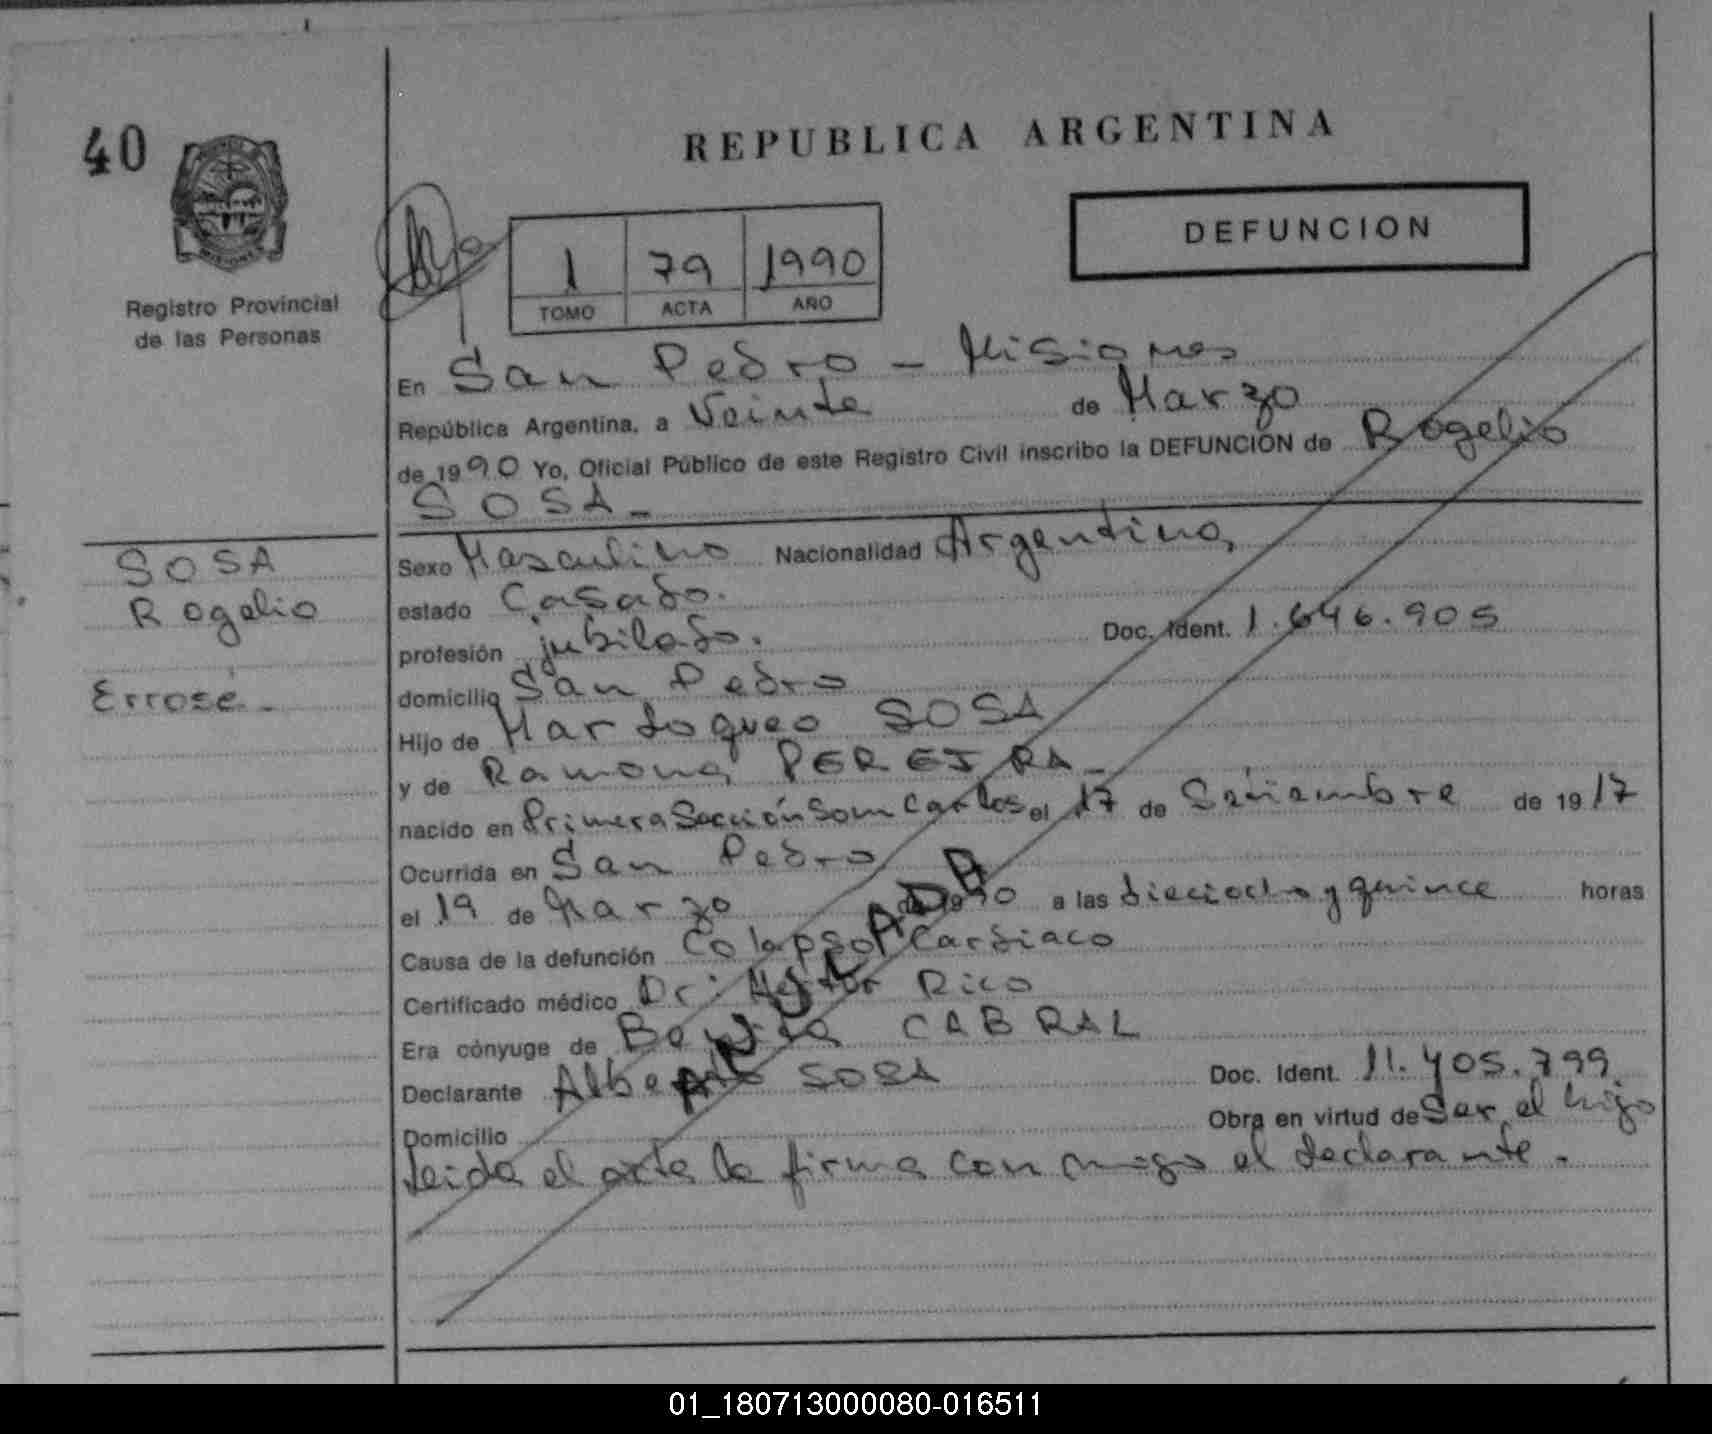 40
REPUBLICA ARGENTINA
DEFUNCION
1 79 1990
TOMO ACTA AÑO
Registro Provincial
de las Personas
En San Pedro - Misiones
República Argentina, a Veinte de Marzo
de 1990 Yo, Oficial Público de este Registro Civil inscribo la DEFUNCION de Rogelio
SOSA -
SOSA
Rogelio
Errose -
Sexo Masculino Nacionalidad Argentina
estado Casado.
profesión jubilado. Doc. Ident. 1.646.905
domicilio San Pedro
Hijo de Mardoqueo SOSA
y de Ramona PEREIRA -
nacido en Primera Sección San Carlos el 17 de Setiembre de 1917
Ocurrida en San Pedro
el 19 de Marzo de 1990 a las dieciocho y quince horas
Causa de la defunción Colapso Cardiaco
Certificado médico Dr: Rico
Era cónyuge de CABRAL
Declarante Alberto SOSA Doc. Ident. 11.405.799
Domicilio Obra en virtud de Ser el hijo
Leida el acta la firma con migo el declarante.
ANULADA
01_180713000080-016511